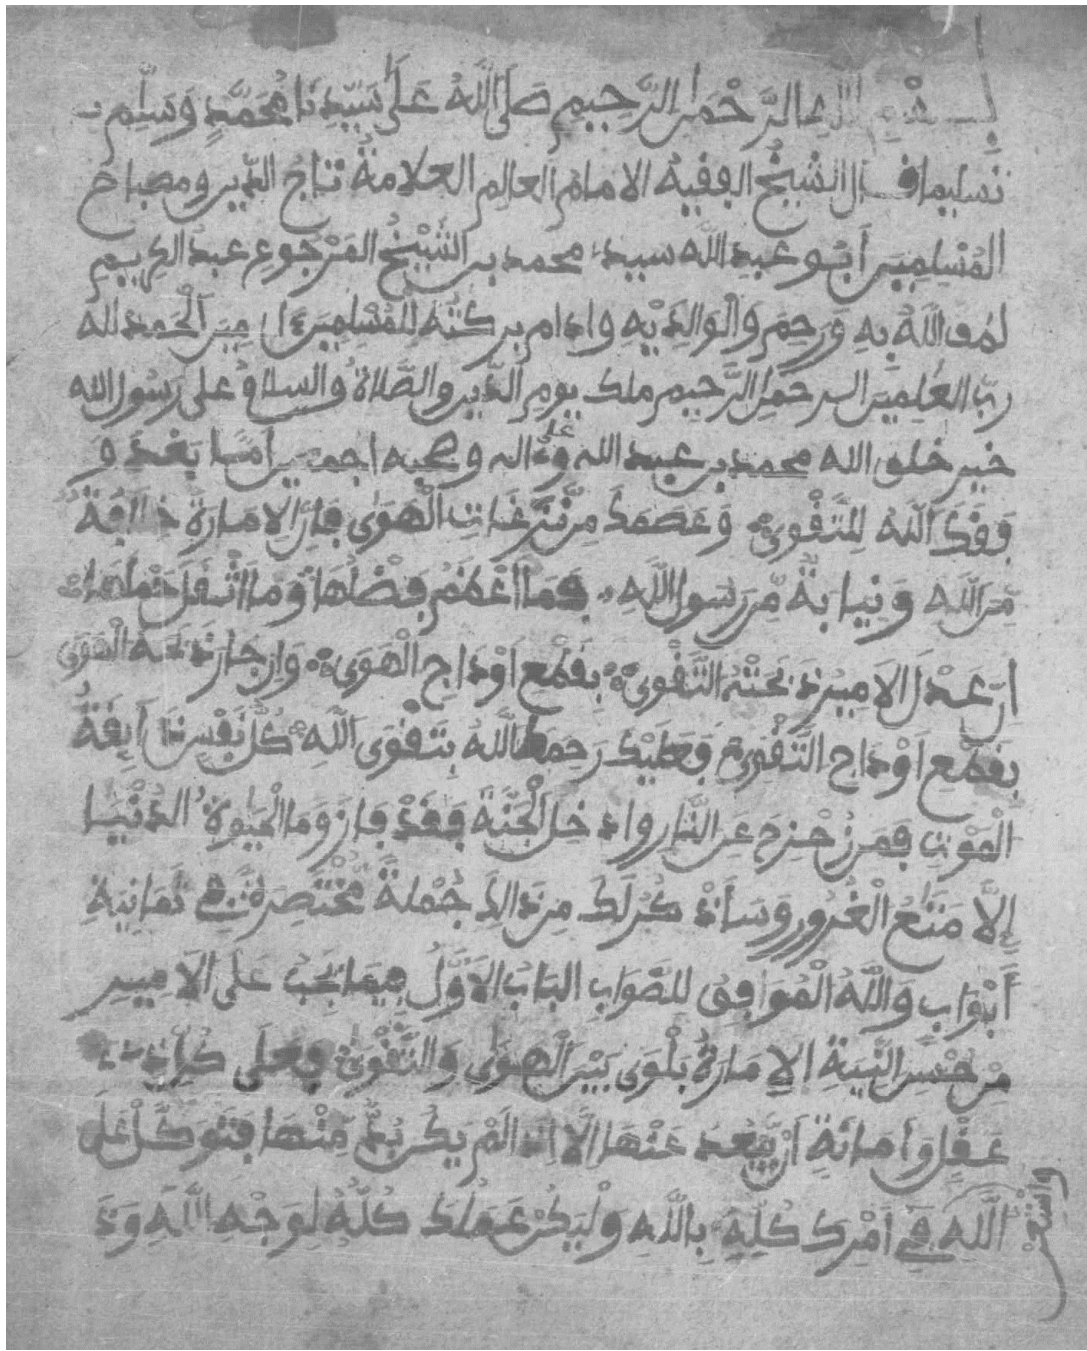 بسم الله الرحمن الرحيم صلى الله على سيدنا محمد وسلم
تسليما قال الشيخ الفقيه الامام العالم العلامة تاج الدين ومصباح
المسلمين أبو عبد الله سيد محمد بن الشيخ المرجوع عبد الكريم
لطف الله به ورحم والوالديه وادام بركته للمسلمين ءامين الحمد لله
رب العلمين الرحمن الرحيم ملك يوم الدين والصلاة والسلام على رسول الله
خير خلق الله محمد بن عبد الله وعلى ءاله وصحبه اجمعين أما بعد و
وفقك الله للتقوى وعصمك من نزغات الهوى فإن الامارة خلافة
من الله ونيابة من رسول الله فما أعظم فضلها وما أثقل حملها
إن عدل الامير ذبحته التقوى بقطع أوداج الهوى وإن جار ذبحه الهوى
بقطع أوداج التقوى فعليك رحمك الله بتقوى الله كل نفس ذايقة
الموت فمن زحزح عن النار وادخل الجنة فقد فاز وما الحيوة الدنيا
إلا متع الغرور وسأذكر لك من ذالك جملة مختصرة في ثمانية
أبواب والله الموافق للصواب الباب الاول فيما يجب على الامير
من حسن النية الامارة بلوى بين الهوى والتقوى فعلى كل ذي
عقل وأمانة أن يبعد عنها إلا إذا لم يكن بد منها فتوكل على
الله في أمرك كله بالله وليكن عملك كله لوجه الله و
واستعن